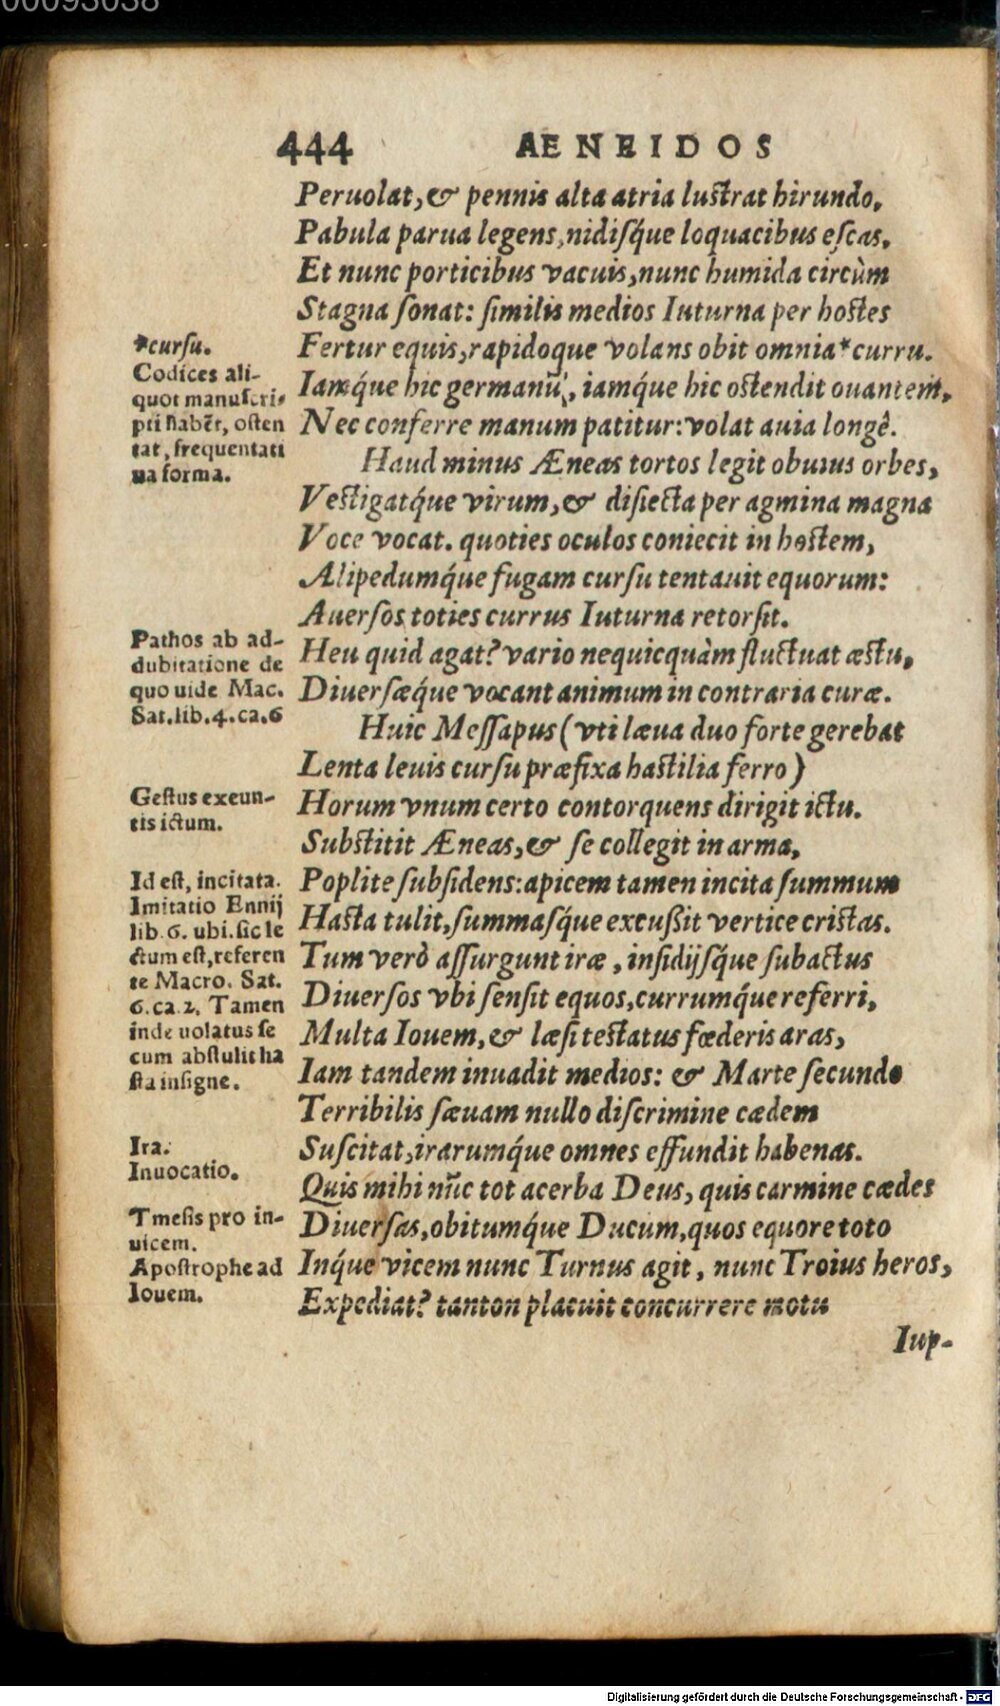 00093038
444 AENEIDOS
Peruolat, & pennis alta atria luſtrat hirundo,
Pabula parua legens, nidiſq́ue loquacibus eſcas,
Et nunc porticibus vacuis, nunc humida circùm
Stagna ſonat: ſimilis medios Iuturna per hoſtes
Fertur equis, rapidoque volans obit omnia*curru.
Iamq́ue hic germanũ, iamq́ue hic oſtendit ouantem,
Nec conferre manum patitur: volat auia longê.
Haud minus Æneas tortos legit obuius orbes,
Veſtigatq́ue virum, & diſiecta per agmina magna
Voce vocat. quoties oculos coniecit in hoſtem,
Alipedumq́ue fugam curſu tentauit equorum:
Auerſos toties currus Iuturna retorſit.
Heu quid agat? vario nequicquàm fluctuat æſtu,
Diuerſæq́ue vocant animum in contraria curæ.
Huic Meſſapus (vti læua duo forte gerebat
Lenta leuis curſu præfixa haſtilia ferro)
Horum vnum certo contorquens dirigit ictu.
Subſtitit Æneas, & ſe collegit in arma,
Poplite ſubſidens: apicem tamen incita ſummum
Haſta tulit, ſummaſq́ue excuſsit vertice criſtas.
Tum verò aſſurgunt iræ, inſidijſq́ue ſubactus
Diuerſos vbi ſenſit equos, currumq́ue referri,
Multa Iouem, & læſi teſtatus fœderis aras,
Iam tandem inuadit medios: & Marte ſecundo
Terribilis ſæuam nullo diſcrimine cædem
Suſcitat, irarumq́ue omnes effundit habenas.
Quis mihi nũc tot acerba Deus, quis carmine cædes
Diuerſas, obitumq́ue Ducum, quos equore toto
Inq́ue vicem nunc Turnus agit, nunc Troius heros,
Expediat? tanton placuit concurrere motu
Iup-
*curſu.
Codices ali-
quot manuſcri-
pti habẽt, oſten
tat, frequentati
ua forma.
Pathos ab ad-
dubitatione de
quo uide Mac.
Sat. lib. 4. ca. 6
Geſtus exeun-
tis ictum.
Id eſt, incitata.
Imitatio Ennij
lib. 6. ubi. ſic le
ctum eſt, referen
te Macro. Sat.
6. ca. 2. Tamen
inde uolatus ſe
cum abſtulit ha
ſta inſigne.
Ira.
Inuocatio.
Tmeſis pro in-
uicem.
Apoſtrophe ad
Iouem.
Digitalisierung gefördert durch die Deutsche Forschungsgemeinschaft - DFG